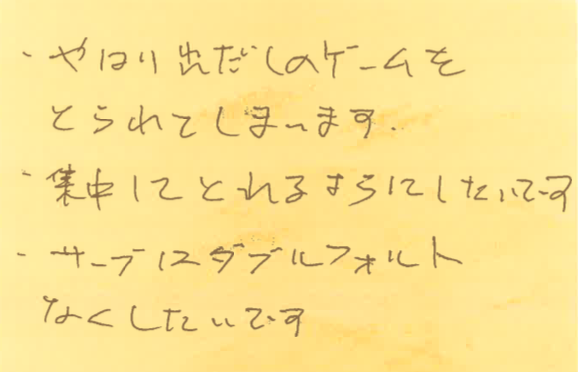 ・やはり出だしのゲームを
とられてしまいます.
・集中してとれるようにしたいです
・サーブはダブルフォルト
なくしたいです